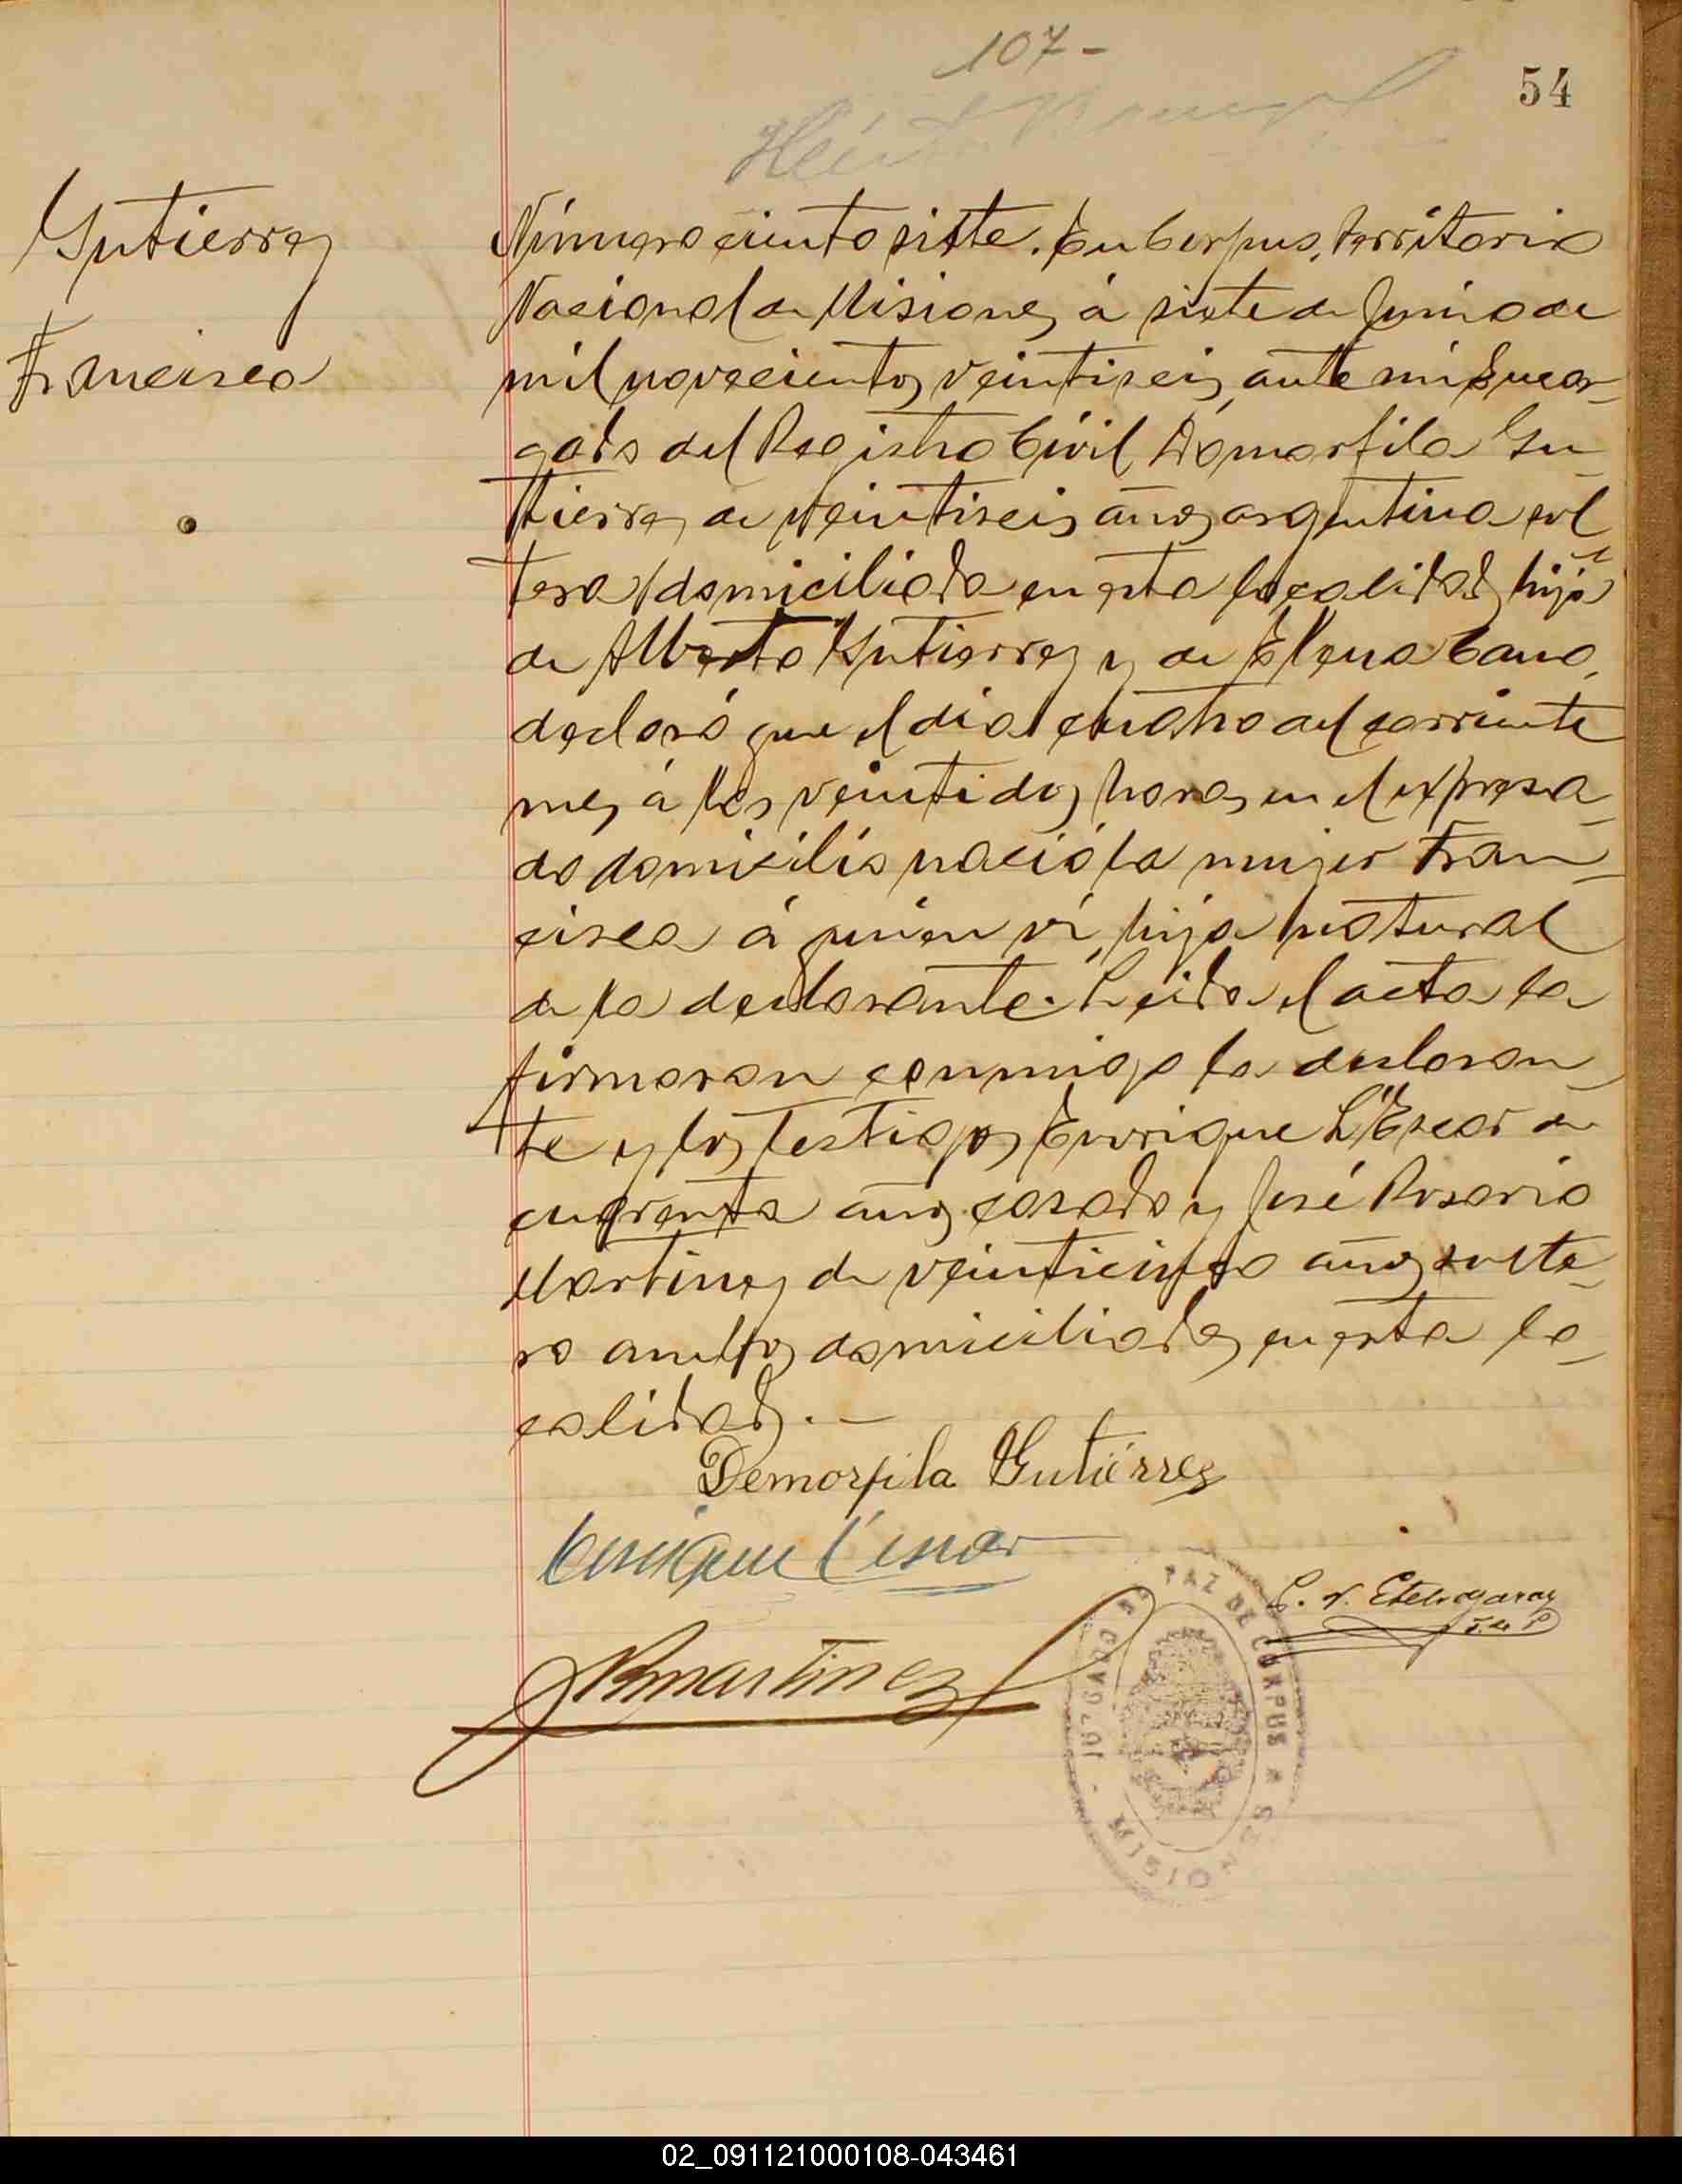 107-
54
Gutierrez
Francisca
Número ciento siete. En Corpus, Territorio
Nacional de Misiones, á siete de Junio de
mil novecientos veintiseis, ante mí Encar-
gado del Registro Civil, Demorfila Gu-
tierrez de veintiseis años argentina sol
tera domiciliada en esta localidad, hija
de Alberto Gutierrez y de Elena Cano,
declaró que el dia cuatro del corriente
mes á las veintidos horas en el expresa-
do domicilio nació la mujer Fran-
cisca á quien ví, hija natural
de la declarante. Leida el acta la
firmaron conmigo la declaran-
te y los testigos Enrique L'Escar de
cuarenta años casado y José Rosario
Martinez de veinticinco años solte-
ro ambos domiciliados en esta lo-
calidad.-
Demorfila Gutiérrez
Enrique L'escar
JRMartinez
Etchegaray
JUZGADO DE PAZ DE CORPUS
MISIONES
02_091121000108-043461